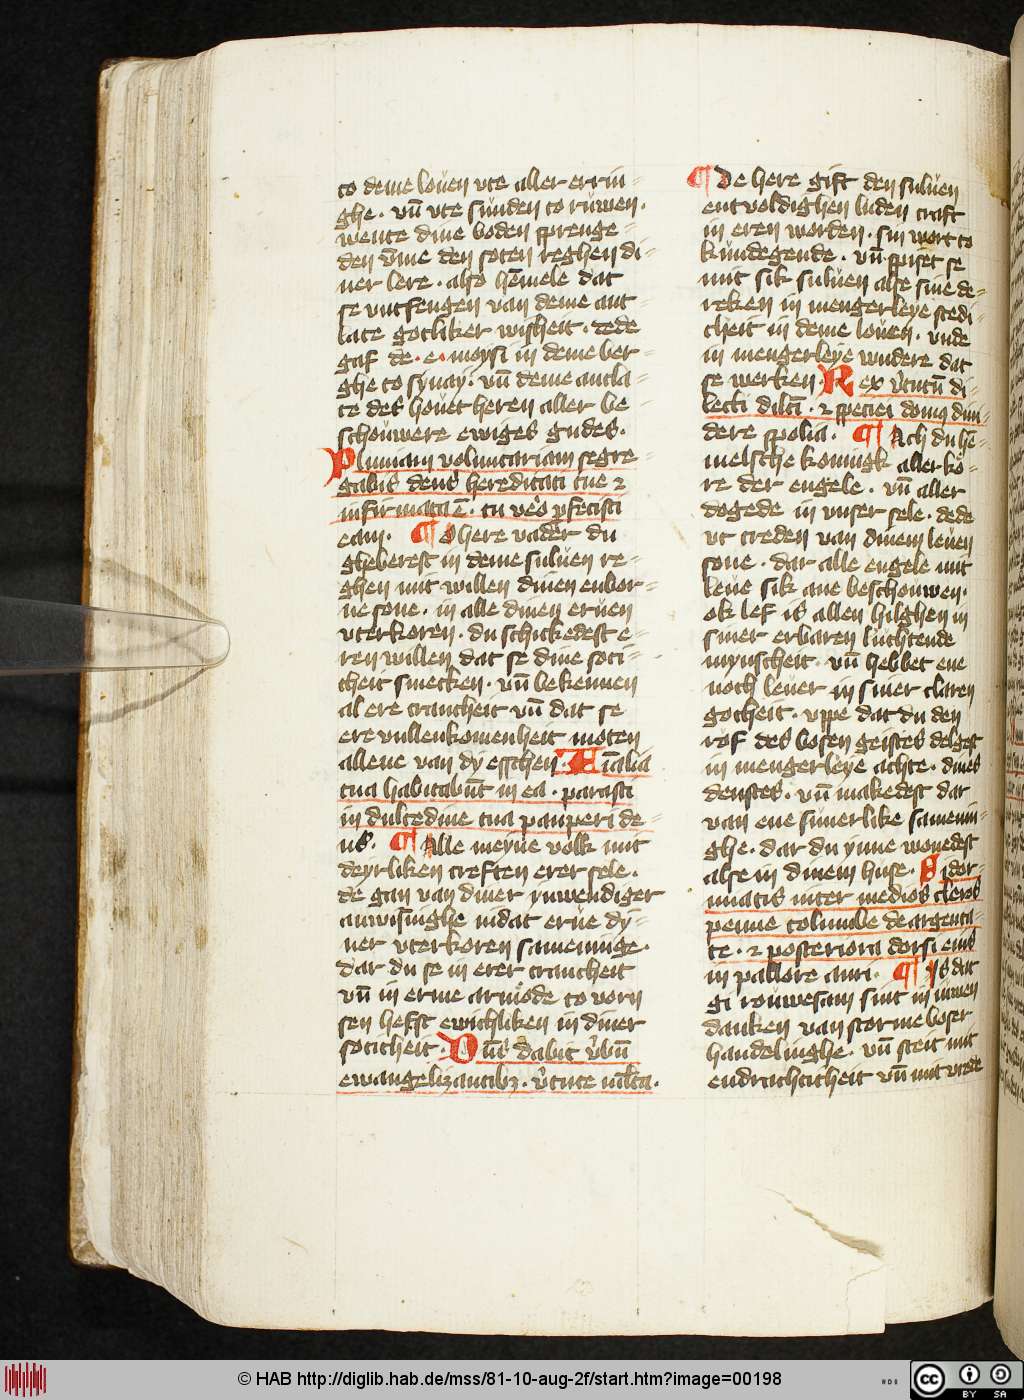 to deme louen vte aller errin-
ghe · vn̄ vte sunden to ruwen ·
wente dine boden sprenge-
den v̄me den soten reghen di-
ner lere · also hēmele dat
se vntfengen van deme ant-
late gotliker wisheit · dede
gaf de · e · moysi in deme ber-
ghe to synay · vn̄ deme antla-
te des houetheren aller be-
schouwere ewiges gudes ·
Pluuiam voluntariam segre-
gabis deus hereditati tue ⁊
infirmata ē · tu vero p̄fecisti
eam · ¶ O here vader du
gheberest in deme suluen re-
ghen mit willen dinen enbor-
ne sone · in alle dinen eruen
vterkoren · du schickedest e-
ren willen dat se dine soti-
cheit smecken · vn̄ bekennen
al ere crancheit vn̄ dat se
ere vullenkomenheit moten
allene van dy esschen · Aīalia
tua habitabūt in ea · parasti
in dulcedine tua pauperi de-
us · ¶ Alle meyne volk mit
deyrliken creften erer sele ·
de gan van diner ynwendiger
anwisinghe indat erue dy-
ner vterkoren sameninge ·
dar du se in erer crancheit
vn̄ in erme armode to vorn
sen hefst ewichliken in diner
soticheit · Dn̄s dabit v̄bū
ewangelizantibꝫ · v̄tute m̄lta ·
¶ De here gift den suluen
entvoldighen luden craft
in eren worden · sin wort to
kundegende · vn̄ spiset se
mit sik suluen alse sine de-
reken in mengerleye stedi-
cheit in deme louen · vnde
in mengerleye wndere dat
se werken · Rex v̄tutū di-
lecti dilc̄ti · ⁊ speciei domꝰ diui-
dere spolia · ¶ Ach du hē-
melsche konnigk aller ko-
re der engele · vn̄ aller
dogede in vnser sele · dede
vt treden van dinem leuen
sone · dar alle engele mit
leue sik ane beschouwen ·
ok lef is allen hilghen in
siner erbaren luchtende
mynscheit · vn̄ hebbet ene
noch leuer in siner claren
gotheit · vppe dat du den
rof des bosen geistes delgest
in mengerleye achte · dines
denstes · vn̄ makedest dar
van ene suuerlike samenin-
ghe · dar du ynne wonedest
alse in dinem huse · Si dor-
miatis inter medios cleros
penne columbe deargenta-
te · ⁊ posteriora dorsi eius
in pallore auri · ¶ Is dat
gi rouwesam sint in iuwen
danken van storme boser
handelinghe · vn̄ steit mit
endrachticheit vn̄ mit vrede
© HAB http://diglib.hab.de/mss/81-10-aug-2f/start.htm?image=00198
HAB
cc
BY SA